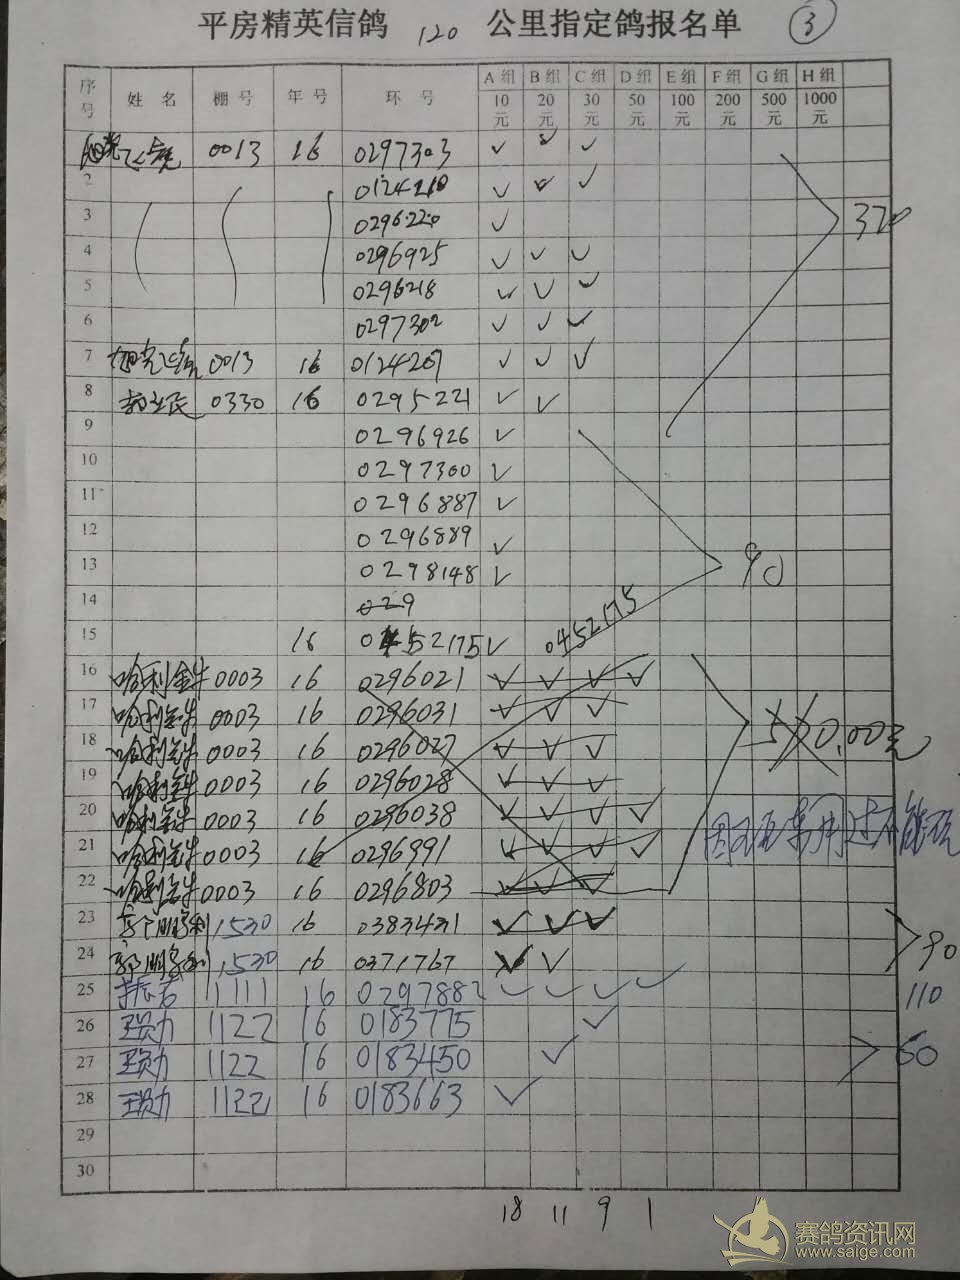 平房精英信鸽 120 公里指定鸽报名单 ③
序号 姓名 棚号 年号 环号 A组 10元 B组 20元 C组 30元 D组 50元 E组 100元 F组 200元 G组 500元 H组 1000元
0013 16 0297303 ✓ ✓ ✓
2 0124210 ✓ ✓ ✓
3 0296220 ✓ 370
4 0296925 ✓ ✓ ✓
5 0296218 ✓ ✓ ✓
6 0297302 ✓ ✓ ✓
7 0013 16 0124207 ✓ ✓ ✓
8 0330 16 0295221 ✓ ✓
9 0296926 ✓
10 0297300 ✓
11 0296887 ✓
12 0296889 ✓
13 0298148 ✓ 90
14 029
15 16 0452175 ✓ 0452175
16 哈利金牛 0003 16 0296021 ✓ ✓ ✓ ✓
17 哈利金牛 0003 16 0296031 ✓ ✓ ✓
18 哈利金牛 0003 16 0296027 ✓ ✓ ✓
19 哈利金牛 0003 16 0296028 ✓ ✓ ✓
20 哈利金牛 0003 16 0296038 ✓ ✓ ✓ ✓
21 哈利金牛 0003 16 0296991 ✓ ✓ ✓ ✓
22 哈利金牛 0003 16 0296803 ✓ ✓ ✓
23 1530 16 0383431 ✓ ✓ ✓
24 1530 16 0371767 ✓ ✓ 90
25 1111 16 0297882 ✓ ✓ ✓ ✓ 110
26 1122 16 0183775 ✓
27 1122 16 0183450 ✓ 60
28 1122 16 0183663 ✓
29
30
18 11 9 1
赛鸽资讯网
www.saige.com